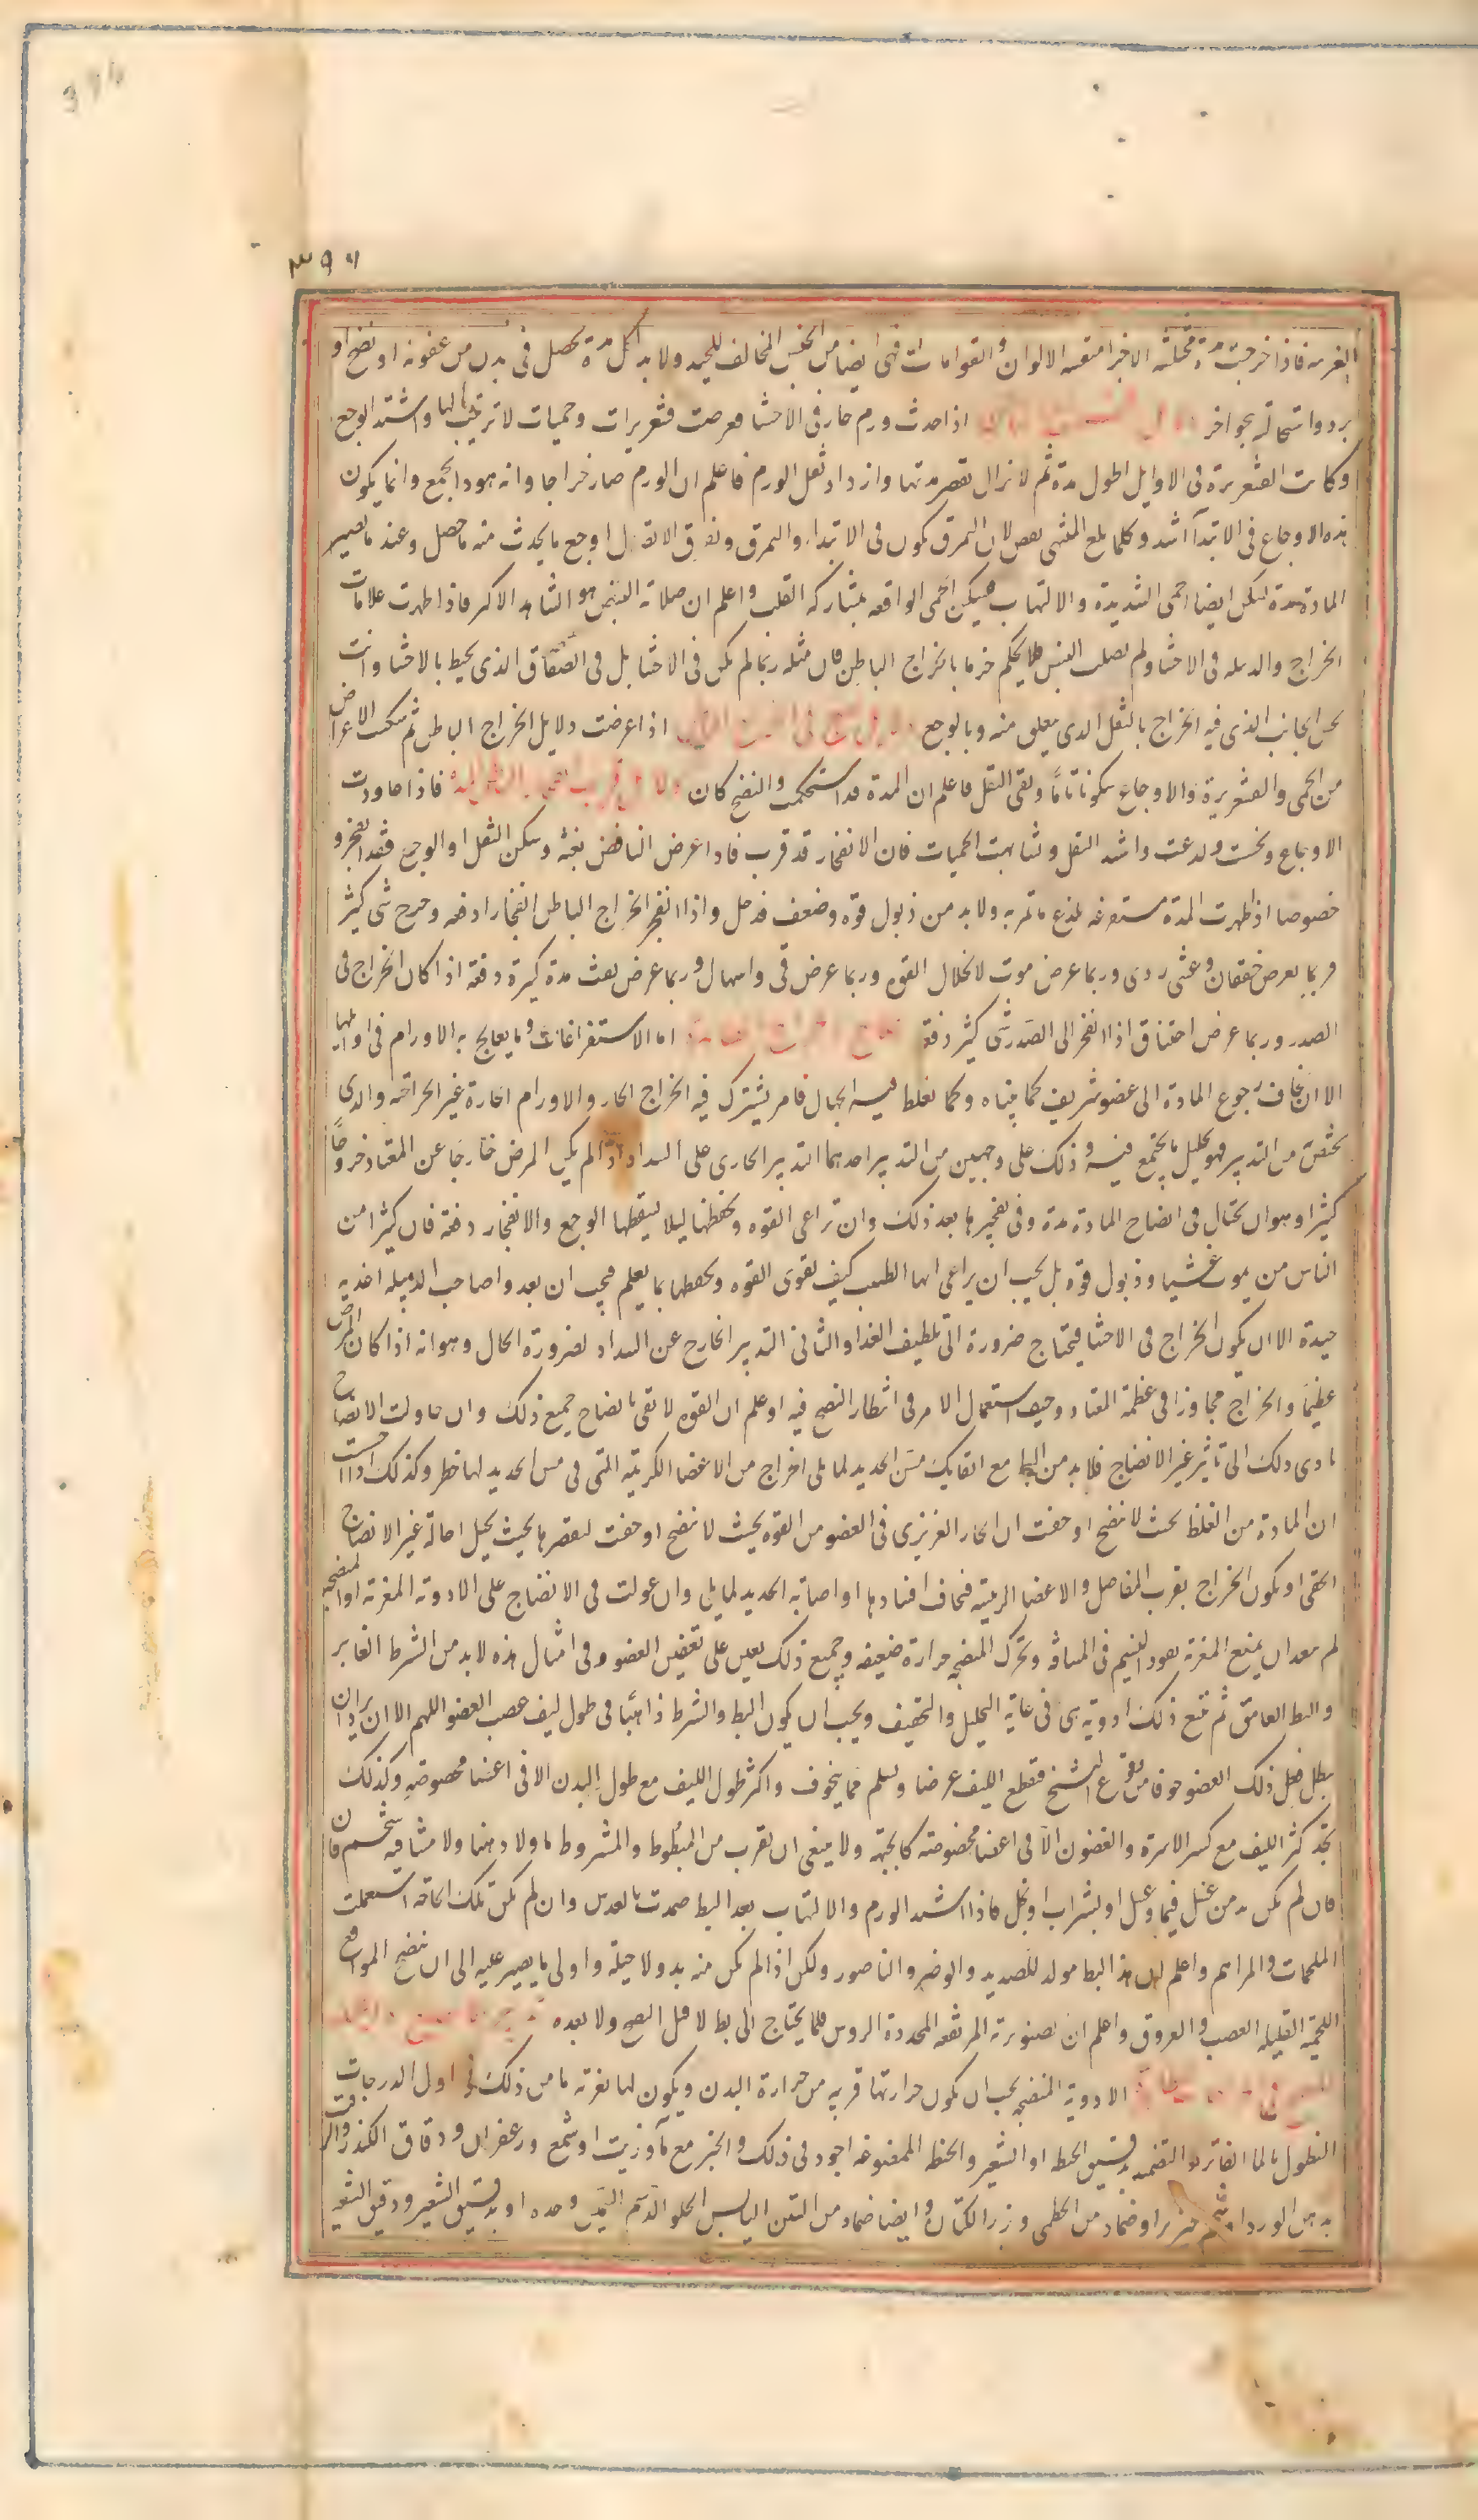 ۳۹۶
الغريبة فاذا خرجت مدة مختلفة الاجزا متفننة الالوان والقوامات فهي ايضا من الجنس المخالف للجيد ولا بد لكل مدة تحصل في بدن من عفونة او نضج او
برد واستحالة بجو اخر اذا حدث ورم حار في الاحشا فعرضت قشعريرات وحميات لا ترتيب لها واشتد الوجع
وكانت القشعريرة في الاوايل اطول مدة ثم لا تزال تقصر مدتها وازداد ثقل الورم فاعلم ان الورم صار خراجا وانه هوذا يجمع وانما يكون
هذه الاوجاع في الابتدآ اشد وكلما بلغ المنتهى نقص لان التمزق يكون في الابتداء والتمزق وتفرق الاتصال اوجع ما يحدث منه ما حصل وعند ما تصير
المادة مدة تسكن ايضا الحمى الشديدة والالتهاب فيسكن الحمى الواقعه بمشاركه القلب واعلم ان صلابة النبض هو الشاهد الاكبر فاذا ظهرت علامات
الخراج والدبيله في الاحشا ولم يصلب النبض فلا يحكم جزما بالخراج الباطن فان مثله ربما لم يكن في الاحشا بل في الصفاق الذي يحيط بالاحشا وانت
تحس الجانب الذي فيه الخراج بالثقل الذي يتعلق منه وبالوجع اذا عرضت دلايل الخراج الباطن ثم سكنت الاعراض
من الحمى والقشعريرة والاوجاع سكونا تامًا وبقي الثقل فاعلم ان المدة قد استحكمت والنضج كان فاذا عاودت
الاوجاع ونخست ولدغت واشتد الثقل وتشابهت الحميات فان الانفجار قد قرب فاذا عرض النافض بغتة وسكن الثقل او الوجع فقد انفجر و
خصوصا اذا ظهرت المدة مستفرغه بلذع ما تمر به ولا بد من ذبول قوة وضعف قد حل واذا انفجر الخراج الباطن انفجارا دفعه وخرج شي كثير
فربما يعرض خفقان وغشي ردي وربما عرض موت لانحلال القوة وربما عرض قي واسهال وربما عرض نفث مدة كثيرة دفعة اذا كان الخراج في
الصدر وربما عرض اختناق اذا انفجر الى الصدر شي كثير دفعة اما الاستفراغات وما يعالج به الاورام في اوايلها
الا ان يخاف رجوع المادة الى عضو شريف كما بيناه وكما يغلط فيه الجهال فامر يشترك فيه الخراج الحار والاورام الحارة غير الخراجه والذي
يختص من التدبير فهو تحليل ما يجتمع فيه وذلك على وجهين من التدبير احدهما التدبير الجاري على السداد اذا لم يكن المرض خارجا عن المعتاد خروجًا
كثيرا وهو ان يحتال في انضاج المادة مدة وفي تفجيرها بعد ذلك وان تراعي القوه وتحفظها ليلا يسقطها الوجع والانفجار دفعة فان كثيرا من
الناس من يموت غشيا وذبول قوة بل يجب ان يراعي ايها الطبيب كيف تقوى القوه وتحفظها بما يعلم فيجب ان يغدوا صاحب الدبيله اغذيه
جيدة الا ان يكون الخراج في الاحشا فيحتاج ضرورة الى تلطيف الغذا والثاني التدبير الخارج عن السداد لضرورة الحال وهو انه اذا كان المرض
عظيمًا والخراج مجاوزا في عظمه المعتاد وخيف استعمال الامر في انتظار النضج فيه او علم ان القوه لا تفي بانضاج جميع ذلك وان حاولت الانضاج
ادى ذلك الى تاثير غير الانضاج فلا بد من البط مع اتقايك مس الحديد لما يلي الخراج من الاعضا الكريمه التي في مس الحديد لها خطر وكذلك اذا احسست
ان المادة من الغلظ بحيث لا تنضج او خفت ان الحار الغريزي في العضو من القوه بحيث لا ينضج او خفت لعصرها بحيث يحيل احالة غير الانضاج
الحقي او يكون الخراج بقرب المفاصل والاعضا الرئيسه فيخاف افسادها او اصابه الحديد لما يلي وان عولت في الانضاج على الادويه المغرية او المنضجه
لم يبعد ان يمنع المغرية نفود النسيم في المسام وتحرك المنضجه حرارة ضعيفه وجميع ذلك يعين على تعفين العضو وفي امثال هذه لا بد من الشرط الغاير
والبط العامق ثم تتبع ذلك ادوية هي في غاية التحليل والتجفيف ويجب ان يكون البط والشرط ذاهبًا في طول ليف عصب العضو اللهم الا ان يراد ان
يبطل فعل ذلك العضو خوفا من وقوع التشنج فيقطع الليف عرضا ويسلم مما يتخوف واكثر طول الليف مع طول البدن الا في اعضا مخصوصه وكذلك
تجد كثر الليف مع كسر الاسرة والغضون الا في اعضا مخصوصة كالجبهة ولا ينبغي ان يقرب من المبطوط والمشروط ماولا دهنا ولا ما فيه شحم فان
فان لم يكن بد من غسل فبماء وعسل او بشراب او بخل فاذا اشتد الورم والالتهاب بعد البط ضمدت بالعدس وان لم يكن تلك الحاجة استعملت
الملحمات والمراهم واعلم ان هذا البط مولد للصديد والوضر والناصور ولكن اذا لم يكن منه بد ولا حيلة واولى ما يصير عليه الى ان ينضج المواضع
اللحمية القليله العصب والعروق واعلم ان صنوبرية المرتفعه المحددة الروس قلما يحتاج الى بط لا قبل النضج ولا بعده
الادوية المنضجه يجب ان يكون حرارتها قريبه من حرارة البدن ويكون لها تغرية ما من ذلك في اول الدرجات
النطول بالما الفاتر والتضميد بدقيق الحنطه او الشعير والحنطه الممضوغه اجود في ذلك والخبز مع مآ وزيت او شمع وزعفران ودقاق الكندر والزفت
بدهن الورد او شحم خنزير او ضماد من الخطمي وبزر الكتان وايضا ضماد من التين اليابس الحلو الدسم اللين وحده او بدقيق الشعير ودقيق الشعير